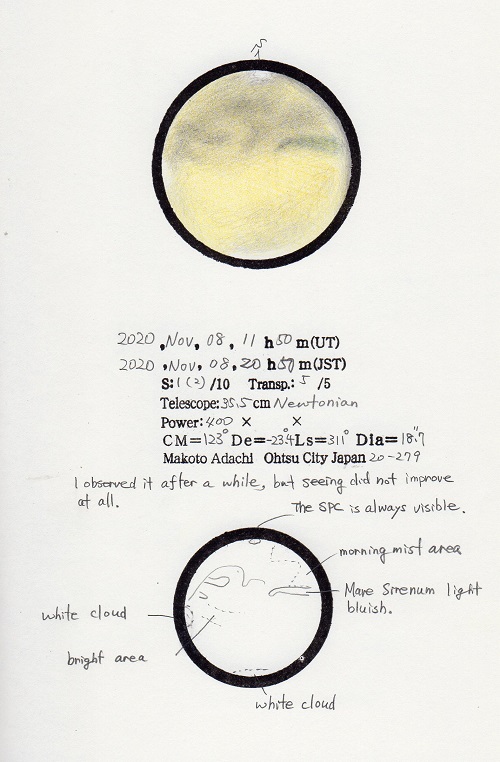 S
2020, Nov, 08, 11 h50 m(UT)
2020, Nov, 08, 20 h50 m(JST)
S:1(2)/10 Transp.: 5 /5
Telescope: 35.5 cm Newtonian
Power: 400 × ×
CM=123° De=-23°4 Ls=311° Dia=18".7
Makoto Adachi Ohtsu City Japan 20-279
I observed it after a while, but seeing did not improve
at all.
The SPC is always visible.
morning mist area
Mare Sirenum light
bluish.
white cloud
bright area
white cloud